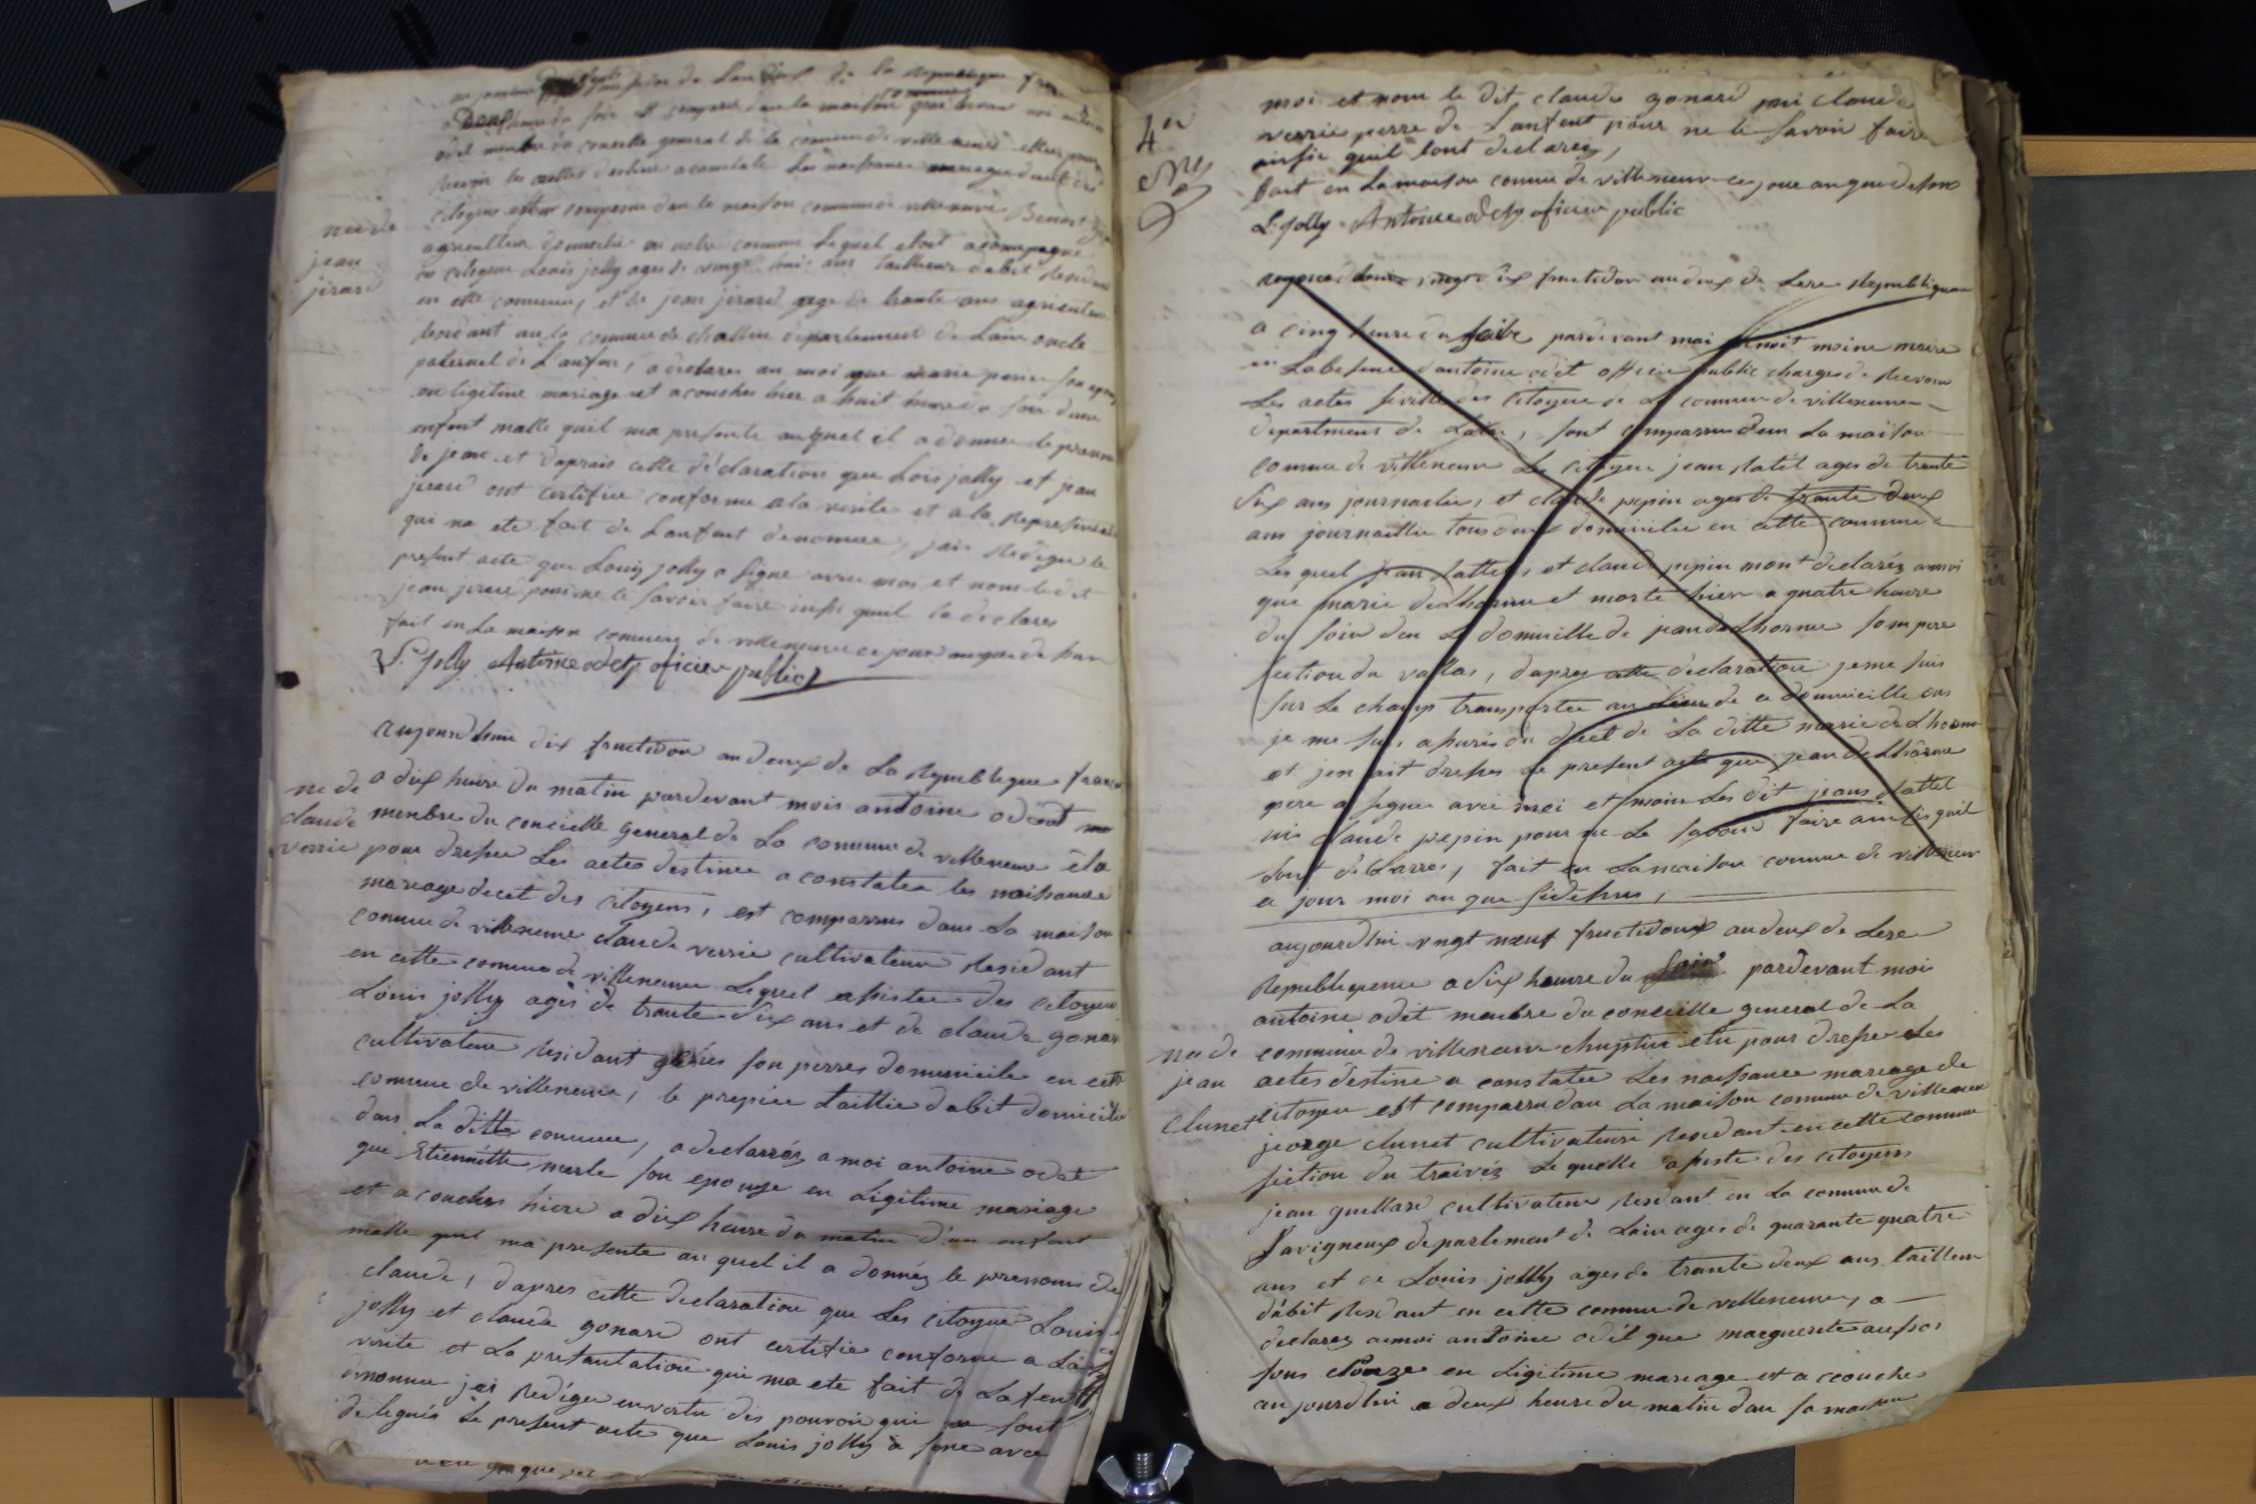 de Lan de la Republique
du soir est comparu dans la maison commune
odet membre du conseille general de la commune de villeneuve
recevoir les actes destiner a constater les naissance mariage
citoyens est comparu dan la maison commune de villeneuve Benoit
née de
jean
jirard
agriculteur domicilie en notre commune Lequel etoit acompagne
du citoyen Louis jolly ages de vingt huit ans tailleur dabit
en cette commune, et de jean jirard age de trante ans agriculteur
residant au la commune de challeur departement de Lain oncle
paternel de Lanfant, a declarer au moi que marie perier son epouse
en ligitime mariage et acouchez hier a huit heure du soir dun
enfant malle quil ma presente auquel il a donner le prenom
de jean et daprais cette déclaration que Lois jolly et jean
jirard ont certifiee conforme a la verite et a la
qui ma ete fait de Lanfant denomme, jais Redigee le
present acte que Louis jolly a signe avec moi et nom le dit
jean jirard pour ne le savoir faire insi quil la declarer
fait en La maison commune de villeneuve ce jour
Ls jolly Antoine odet oficier public
aujourdhui dix fructidor an deux de La Republique
née de
claude
verrié
a dix heure du matin pardevant mois antoine odet
menbre du conceille general de La commune de villeneuve élu
pour dresser Les actes destinee a constatee les naissance
mareage decet des citoyens, est comparru dans La maison
comune de villeneuve claude verrie cultivateur Residant
en cette commune de villeneuve Lequel assistee des citoyen
Louis jolly agés de trante six ans et de claude gonard
cultivateur Residant son perres domicile en cette
comune de villeneuve, le premier taillié dabit domicilié
dans La ditte commune, a declarréz a moi antoine odet
que Etiennette merle son epouze en Ligitime mariage
et a couchez hiere a dix heure du matin d'un enfant
malle quil ma presente au quel il a donnéz le prenoms de
claude, dapres cette declaration que Les citoyen Louis
jolly et claude gonard ont certifie conforme a La
verite et La presantation qui ma ete fait de Lanfent
denomme jai Redigee en vertu des pouvoir qui sont
delegués Le present acte que Louis jolly a signe avec
4
moi et nom le dit claude gonard ni claude
verrie perre de Lanfent pour ne le savoir faire
ainsie quil lont declarez,
fait en La maison comune de villeneuve ce jour
Ls jolly Antoine odet oficier public
aujourdhui vingt six fructidor an deux de Lere Republiquaine
a cinq heure du soire pardevant moi Benoit moine maire
en Labsence dantoine odet officier public charges de Recevoir
Les actes siville des citoyen de La commune de villeneuve
departement de Lain, sont comparru dans La maison
comune de villeneuve Les citoyen jean datel ages de trante
six ans journaelier, et claude pepin ages de trante deux
ans journaillie tous deux domicilie en cette commune
Les quel jean dattel, et claude pepin mont declaréz a moi
que marie delhorme et morte hier a quatre heure
du soir dan Le domicille de jean delhorme son pere
section du vallas, dapres cette declaration je me suis
sur Le champ transportee au Lieu de ce domicille ou
je me suis assuré du decet de La ditte marie delhorme
et jen ait dresser ce present acte que jean delhorme
pere a signer avec moi et moin Les dit jean dattel
ni claude pepin pour ne Le savoir faire ainsi quil
lont declarré, fait en La maison comune de villeneuve
ce jour moi an que sidesus,
aujourdhui vingt nœuf fructidour an deux de Lere
Republiquenne a six heure du soir pardevant moi
antoine odet menbre du conseille general de La
née de
jean
clunet
commune de villeneuve elu pour dresser Les
actes destine a constatee Les naissance mareage de
citoyen est comparru dan La maison comune de villeneuve
jeorge clunet cultivateur Residant en cette commune
section du traivés Le quelle assiste des citoyens
jean guillard cultivateur Residant en La comune de
Savigneux departement de Lain ages de quarante quatre
ans et de Louis jolly ages de trante deux ans tailleur
dabit Residant en cette commune de villeneuve, a
declarez a moi antoine odet que marguerite
sons epouze en Ligitime mareage et a couchez
aujourdhui a deux heure du matin dan sa maison